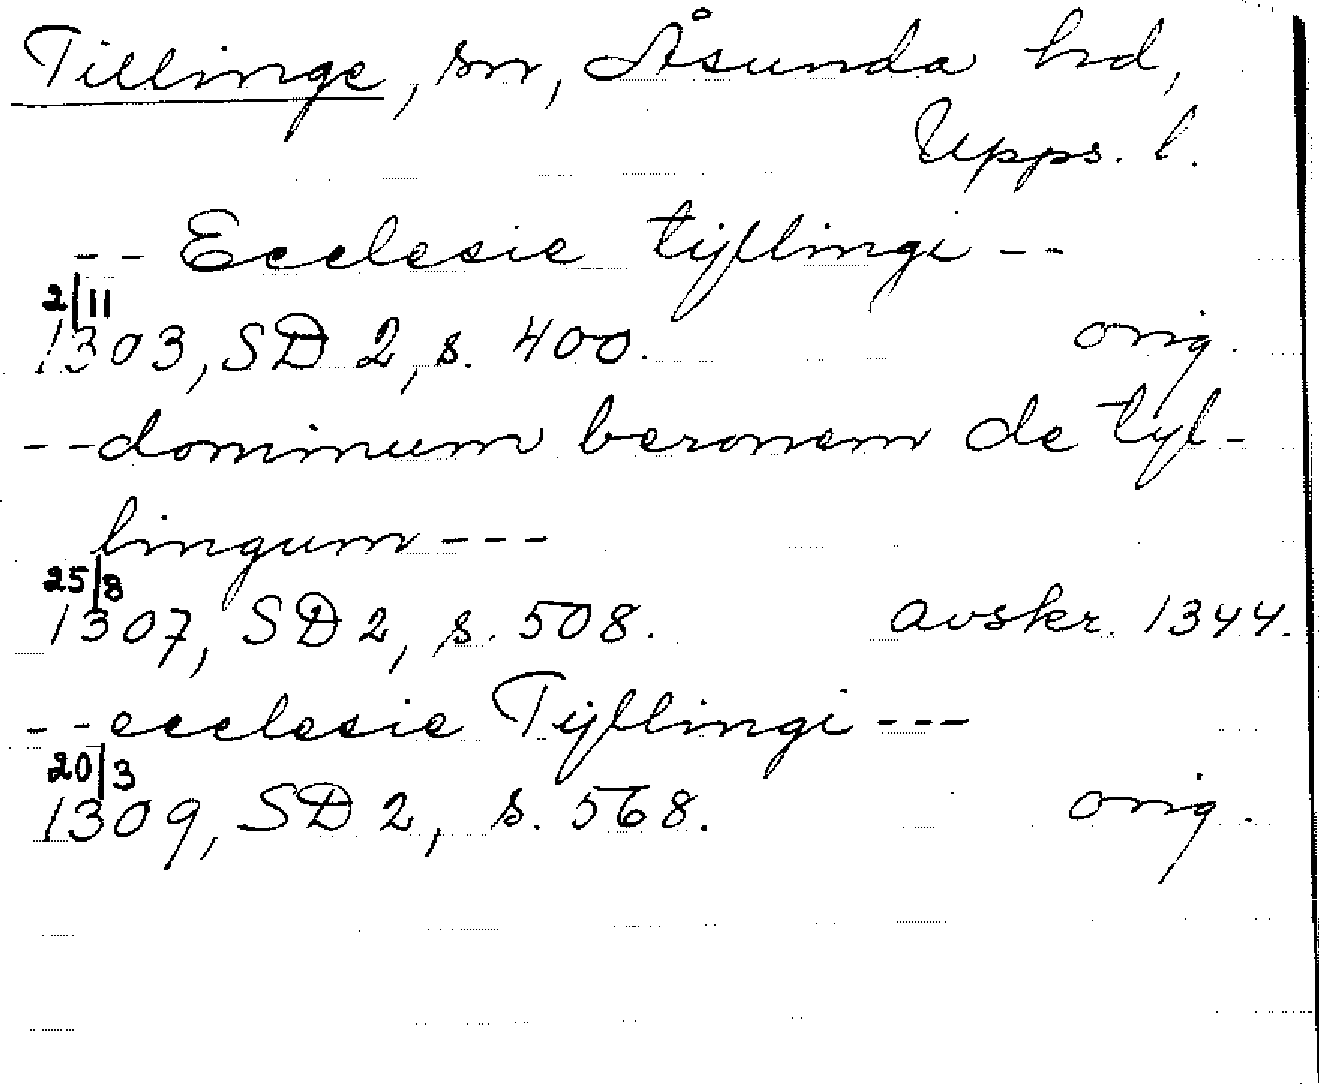 Tillinge, sn, Åsunda hd,
Upps. l.
-- Ecclesie tyllingi --
2/11
1303, SD 2, s. 400. orig.
-- dominum beronem de tyl-
lingum ---
25/8
1307, SD 2, s. 508. avskr. 1344.
-- ecclesie Tyllingi ---
20/3
1309, SD 2, s. 568. orig.